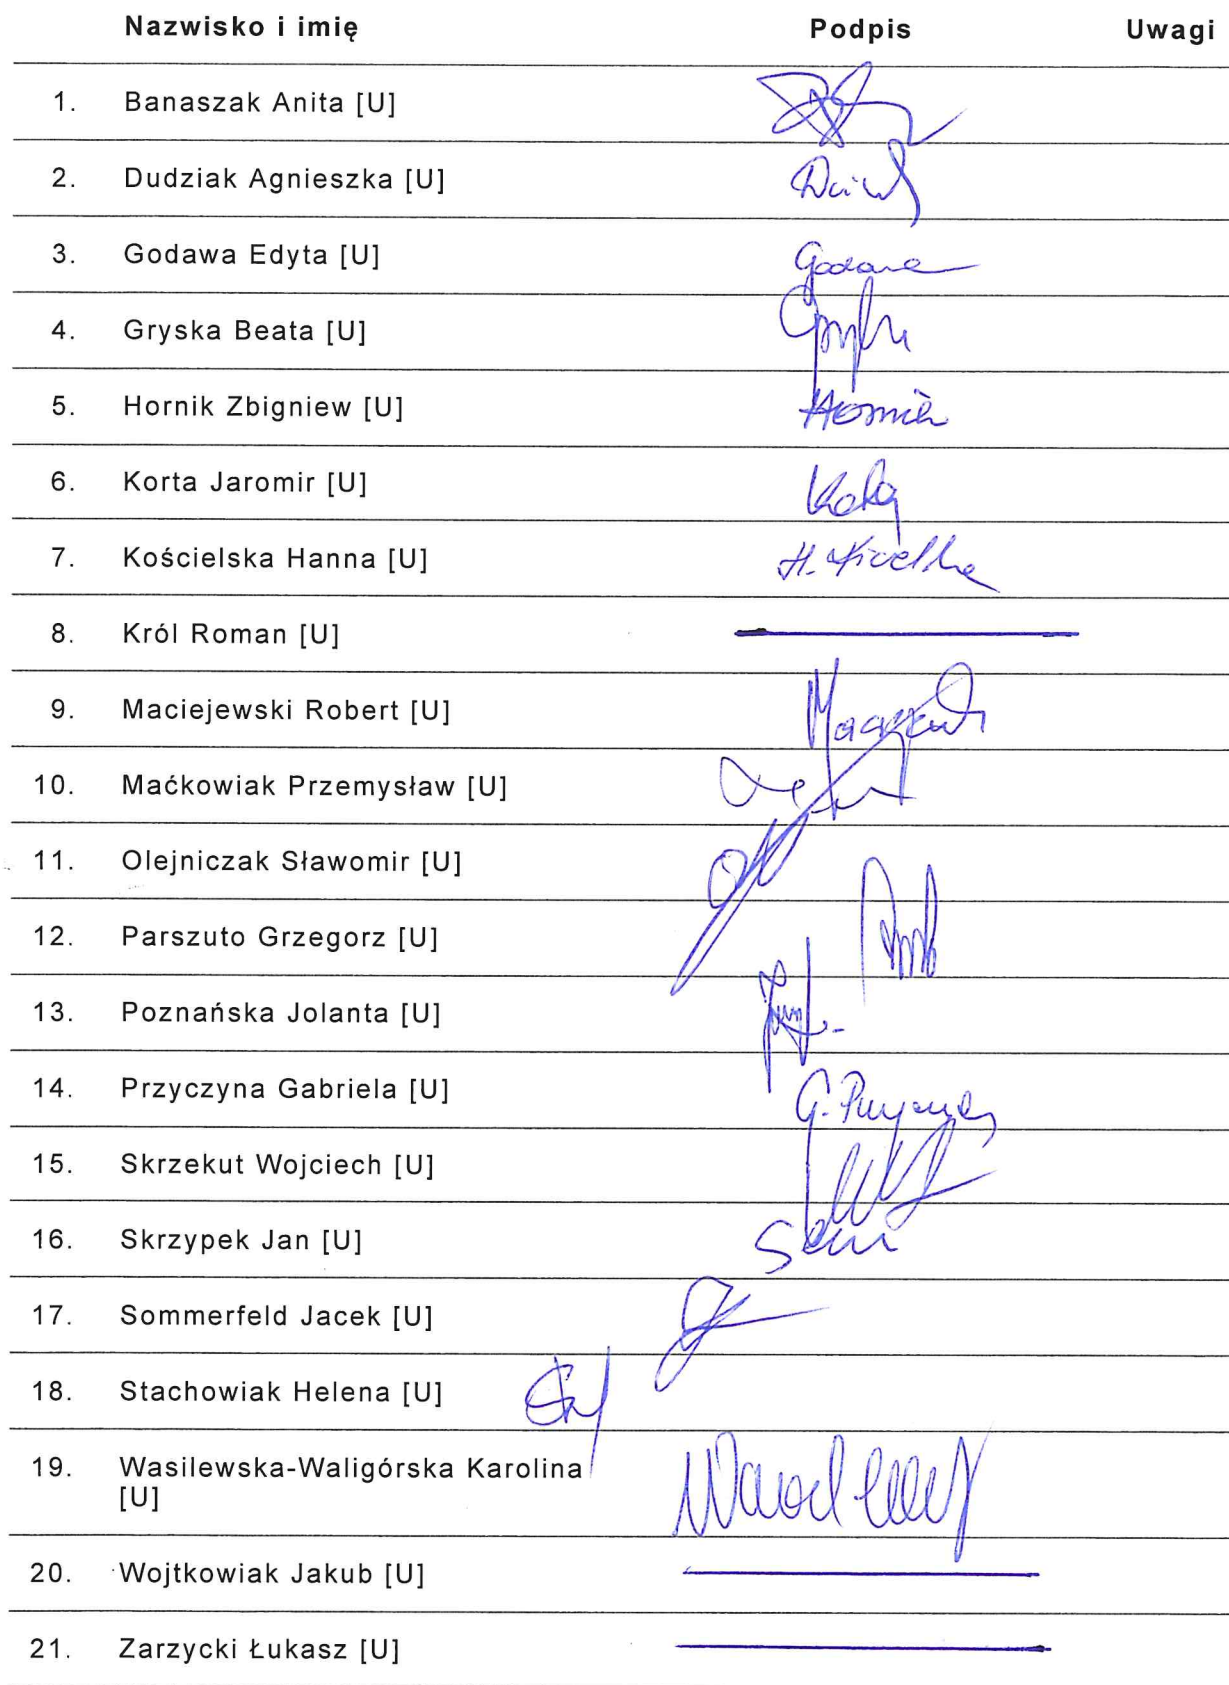 Nazwisko i imię Podpis Uwagi
1. Banaszak Anita [U]
2. Dudziak Agnieszka [U]
3. Godawa Edyta [U] Godawa
4. Gryska Beata [U]
5. Hornik Zbigniew [U] Hornik
6. Korta Jaromir [U]
7. Kościelska Hanna [U] H.
8. Król Roman [U]
9. Maciejewski Robert [U]
10. Maćkowiak Przemysław [U]
11. Olejniczak Sławomir [U]
12. Parszuto Grzegorz [U]
13. Poznańska Jolanta [U]
14. Przyczyna Gabriela [U] G.
15. Skrzekut Wojciech [U]
16. Skrzypek Jan [U]
17. Sommerfeld Jacek [U]
18. Stachowiak Helena [U]
19. Wasilewska-Waligórska Karolina
[U]
20. Wojtkowiak Jakub [U]
21. Zarzycki Łukasz [U]